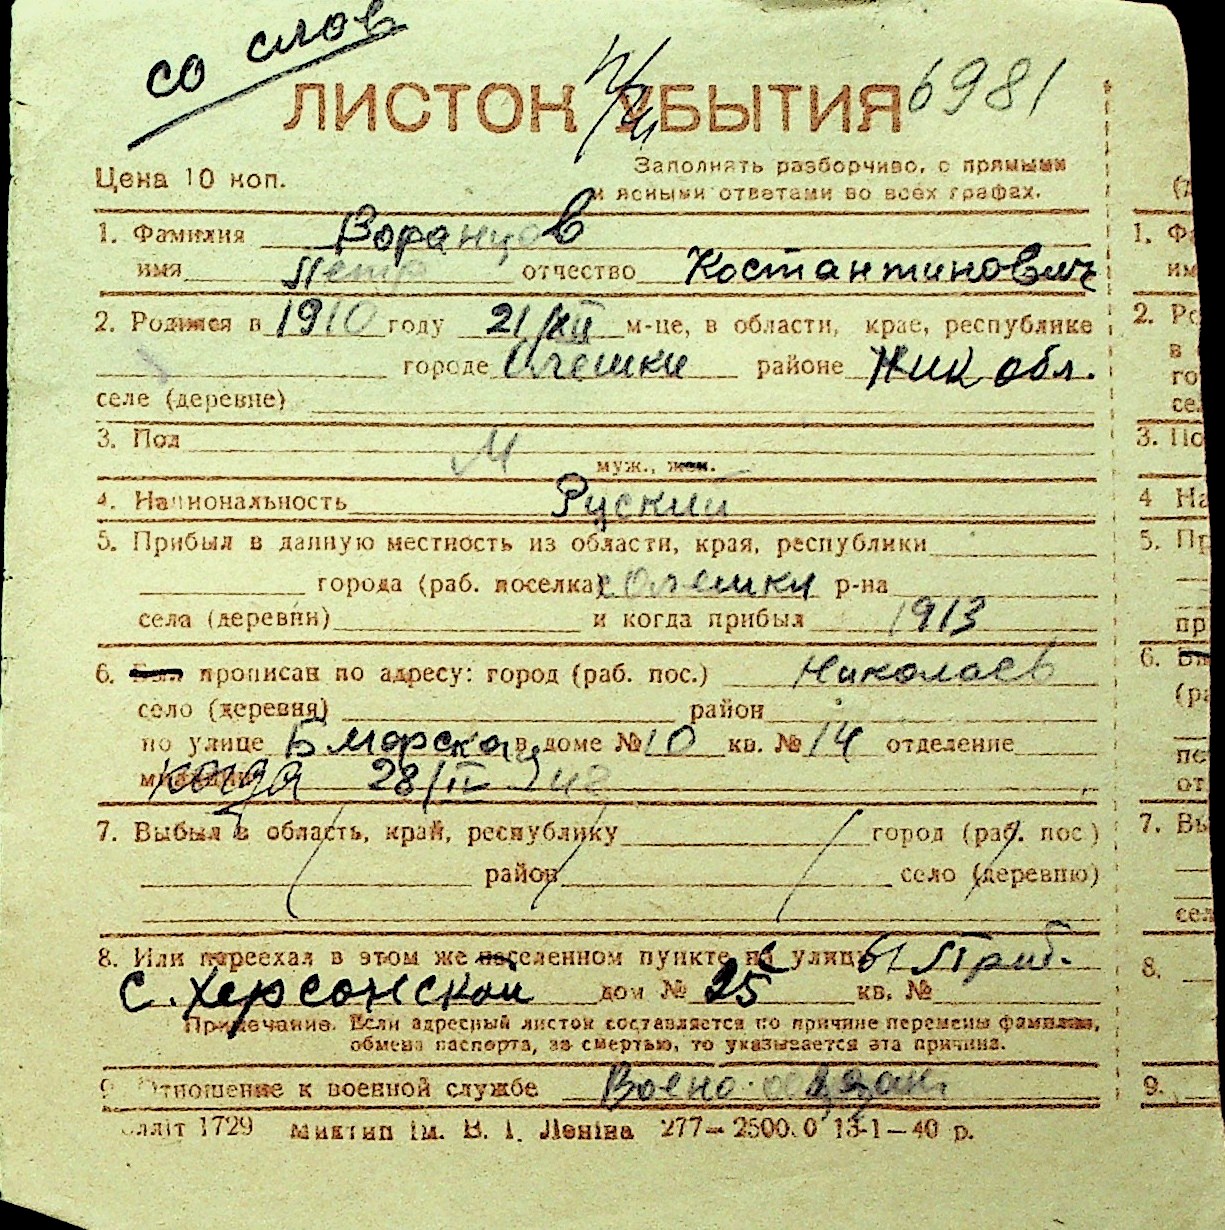 со слов
ЛИСТОК УБЫТИЯ 6981
Цена 10 коп.
Заполнять разборчиво, с прямыми
и ясными ответами во всех графах.
1. Фамилия Воранцов
имя Петр отчество Костантинович
2. Родился в 1910 году 21/XII м-це, в области, крае, республике
городе Олешки районе Ник обл.
селе (деревне)
3. Пол М
муж., жен.
4. Национальность Руский
5. Прибыл в данную местность из области, края, республики
города (раб. поселка) Олешки р-на
села (деревни) и когда прибыл 1913
6. Был прописан по адресу: город (раб. пос.) Николаев
село (деревня) район
по улице Б Морская в доме № 10 кв. № 14 отделение
когда 28/IV
7. Выбыл в область, край, республику город (раб. пос.)
район село (деревню)
8. Или переехал в этом же населенном пункте на улицу
с. Херсонской дом № 25 кв. №
Примечание. Если адресный листок составляется по причине перемены фамилии,
обмена паспорта, за смертью, то указывается эта причина.
9. Отношение к военной службе Воено-обязан
1729 Миктип ім. В. І. Леніна 277—2500.0 13-1—40 р.
1.
им
2.
в
го
сел
3. По
4 На
5. Пр
пр
6.
(ра
по
от
7. Вы
сел
8.
9.